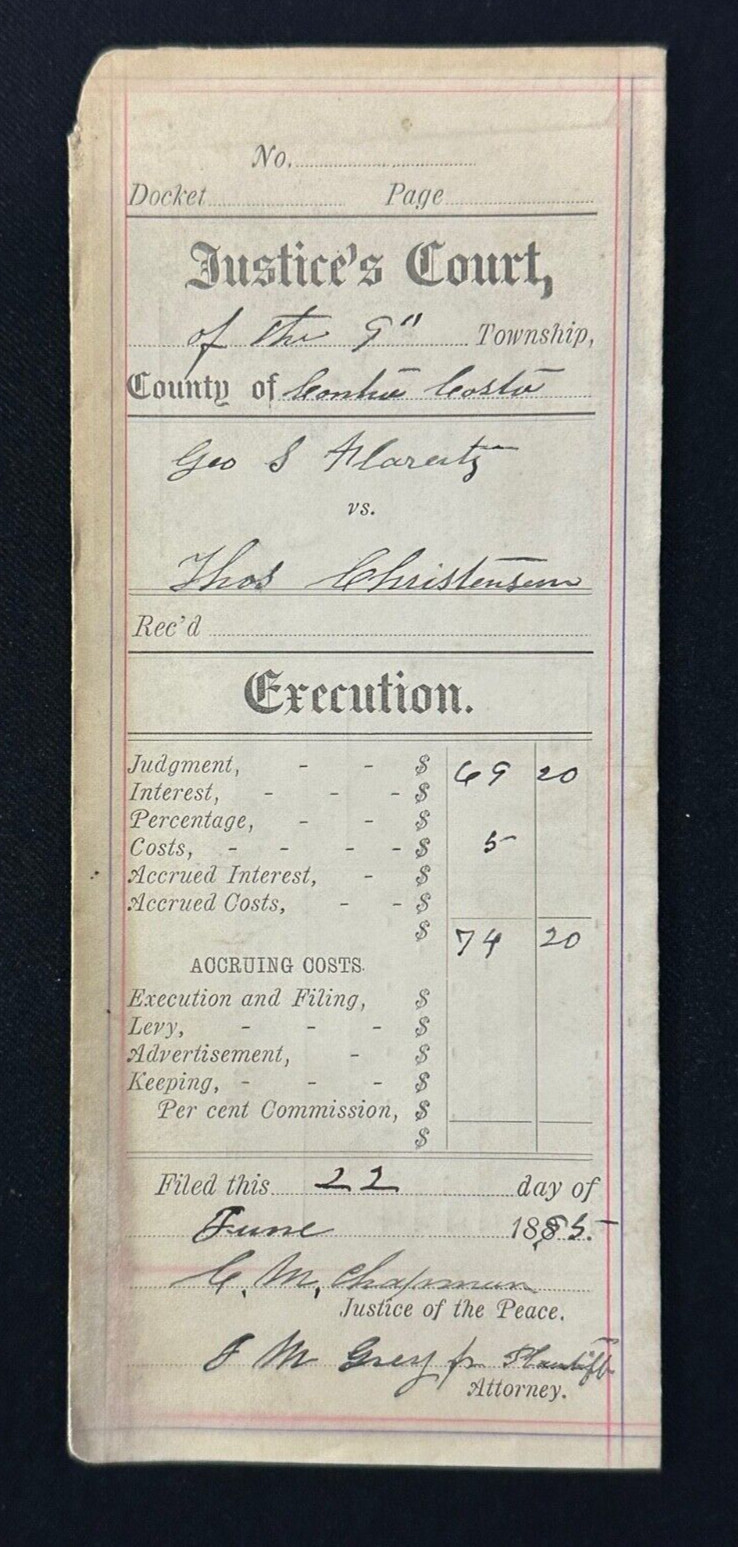 No.
Docket Page
Justice's Court,
of the 9" Township,
County of Contra Costa
Geo S
vs.
Thos Christensen
Rec'd
Execution.
Judgment, - - $ 69 20
Interest, - - - $
Percentage, - - $
Costs, - - - - $ 5
Accrued Interest, - $
Accrued Costs, - - $
$ 74 20
ACCRUING COSTS.
Execution and Filing, $
Levy, - - - $
Advertisement, - $
Keeping, - - - $
Per cent Commission, $
$
Filed this 22 day of
June 1885.
C. M. Chapman
Justice of the Peace.
M Grey for Plaintiff
Attorney.